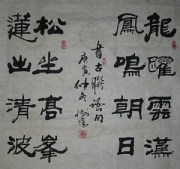 龍躍雲漢
鳳鳴朝日
書古聯語句
庚寅仲冬
松坐高峯
蓮出清波